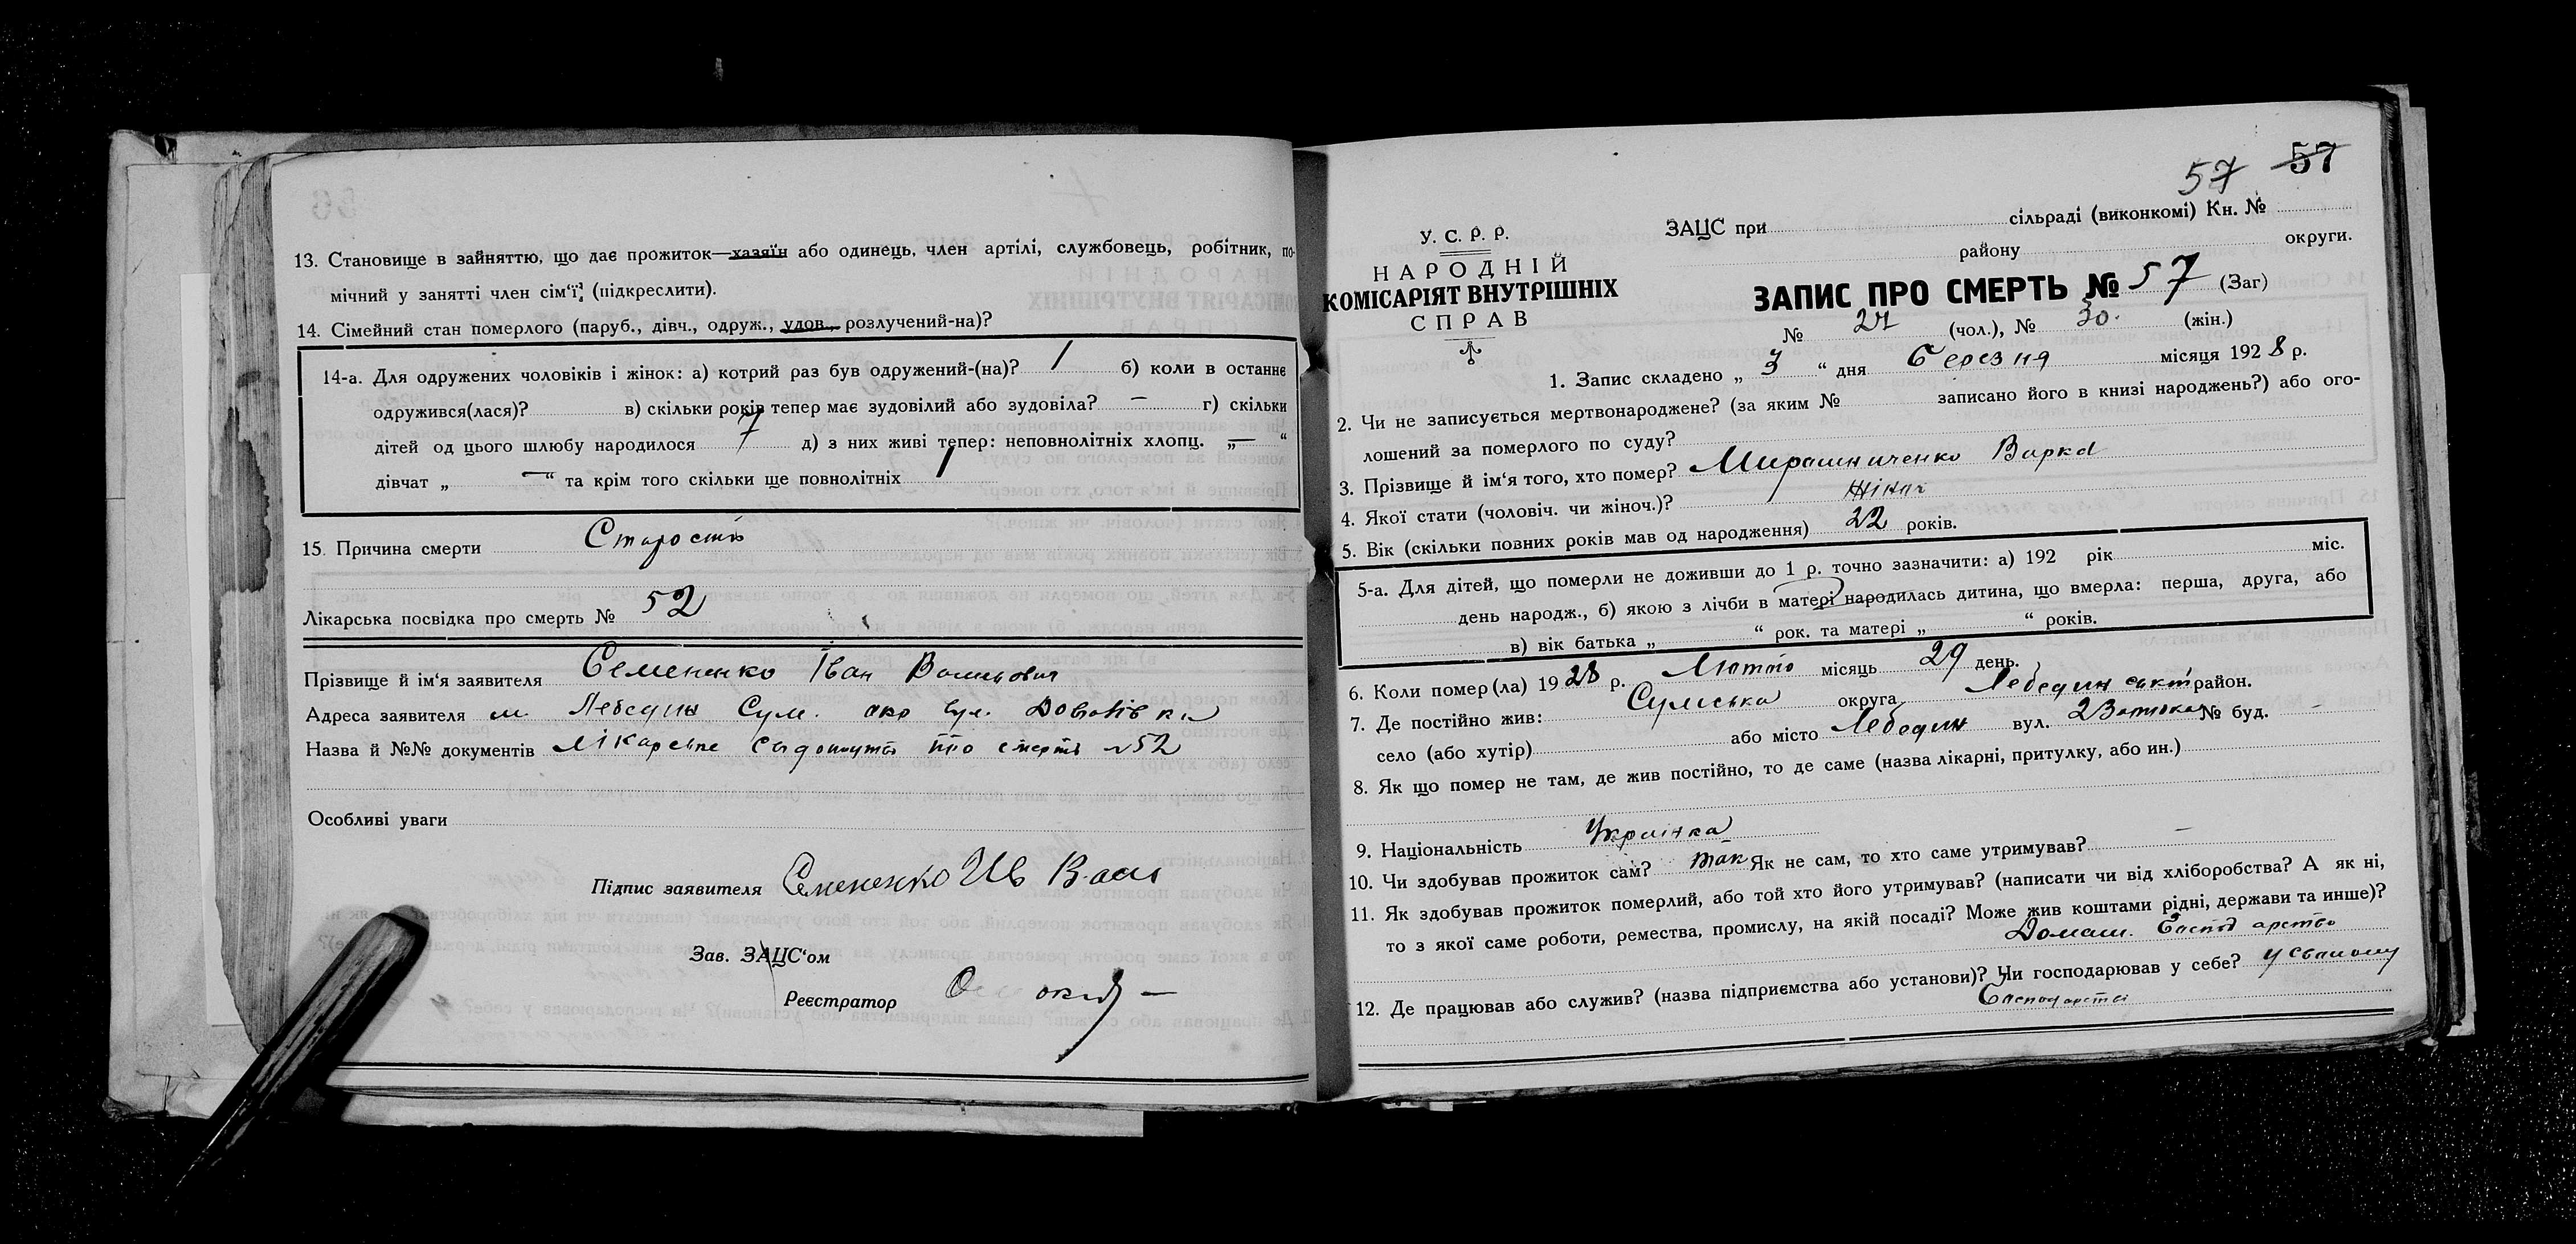 13. Становище в зайняттю, що дає прожиток—хазяїн або одинець, член артілі, службовець, робітник, по-
мічний у занятті член сім‘ї, (підкреслити).
14. Сімейний стан померлого (паруб., дівч., одруж., удов., розлучений-на)?
14-а. Для одружених чоловіків і жінок: а) котрий раз був одружений-(на)? 1 б) коли в останнє
одружився(лася)? в) скільки років тепер має зудовілий або зудовіла? — г) скільки
дітей од цього шлюбу народилося 7 д) з них живі тепер: неповнолітніх хлопц. „—“
дівчат „—“ та крім того скільки ще повнолітніх 1
15. Причина смерти Старость
Лікарська посвідка про смерть № 52
Прізвище й ім‘я заявителя Семененко Іван Васильович
Адреса заявителя м. Лебедин Сум. окр вул.
Назва й №№ документів лікарське про смерть №52
Особливі уваги
Підпис заявителя Семененко Ив Васил
Зав. ЗАЦС‘ом
Реєстратор
57 57
У. С. Р. Р.
НАРОДНІЙ
КОМІСАРІЯТ ВНУТРІШНІХ
СПРАВ
ЗАЦС при сільраді (виконкомі) Кн. №
району округи.
ЗАПИС ПРО СМЕРТЬ № 57 (Заг)
№ 27 (чол.), № 30. (жін.)
1. Запис складено „ 3 “ дня Березня місяця 1928 р.
2. Чи не записується мертвонароджене? (за яким № записано його в книзі народжень?) або ого-
лошений за померлого по суду?
3. Прізвище й ім‘я того, хто помер? Мирошниченко Варка
4. Якої стати (чоловіч. чи жіноч.)? жіноч
5. Вік (скільки повних років мав од народження) 22 років.
5-а. Для дітей, що померли не доживши до 1 р. точно зазначити: а) 192 рік міс.
день народж., б) якою з лічби в матері народилась дитина, що вмерла: перша, друга, або
в) вік батька „ “ рок. та матері „ “ років.
6. Коли помер(ла) 1928 р. Лютого місяць 29 день.
7. Де постійно жив: Сумська округа Лебединський район.
село (або хутір) або місто Лебедин вул. № буд. —
8. Як що помер не там, де жив постійно, то де саме (назва лікарні, притулку, або ин.)
9. Національність Українка
10. Чи здобував прожиток сам? так Як не сам, то хто саме утримував? —
11. Як здобував прожиток померлий, або той хто його утримував? (написати чи від хліборобства? А як ні,
то з якої саме роботи, ремества, промислу, на якій посаді? Може жив коштами рідні, держави та инше)?
Домаш. Господарство
12. Де працював або служив? (назва підприємства або установи)? Чи господарював у себе? у своему
Господарстві